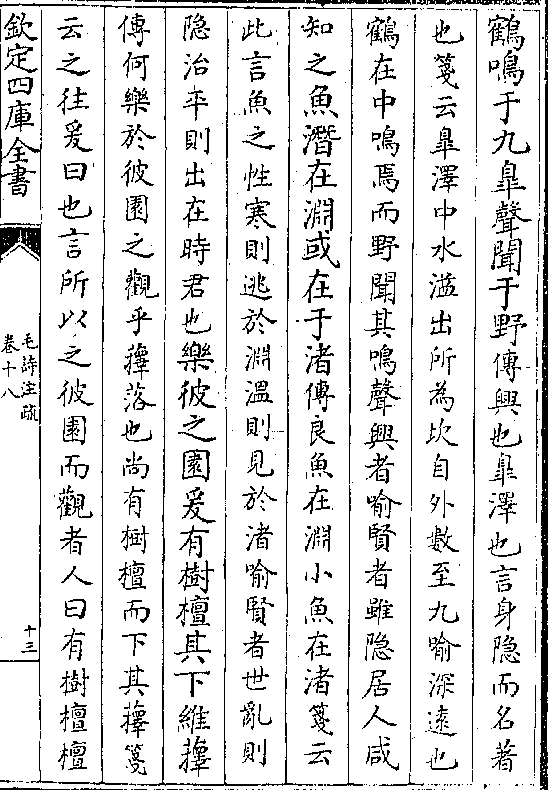 鶴鳴于九臯聲聞于野傳興也臯澤也言身隐而名著
也箋云臯澤中水溢出所為坎自外數至九喻深逺也
鶴在中鳴焉而野聞其鳴聲興者喻賢者雖隐居人咸
知之魚潛在淵或在于渚傳良魚在淵小魚在渚箋云
此言魚之性寒則逃於淵温則見於渚喻賢者世亂則
隐治平則出在時君也樂彼之園爰有樹檀其下維蘀
傳何樂於彼園之觀乎蘀落也尚有樹檀而下其蘀箋
云之往爰曰也言所以之彼園而觀者人曰有樹檀檀
欽定四庫全書
毛詩注疏
卷十八
十三